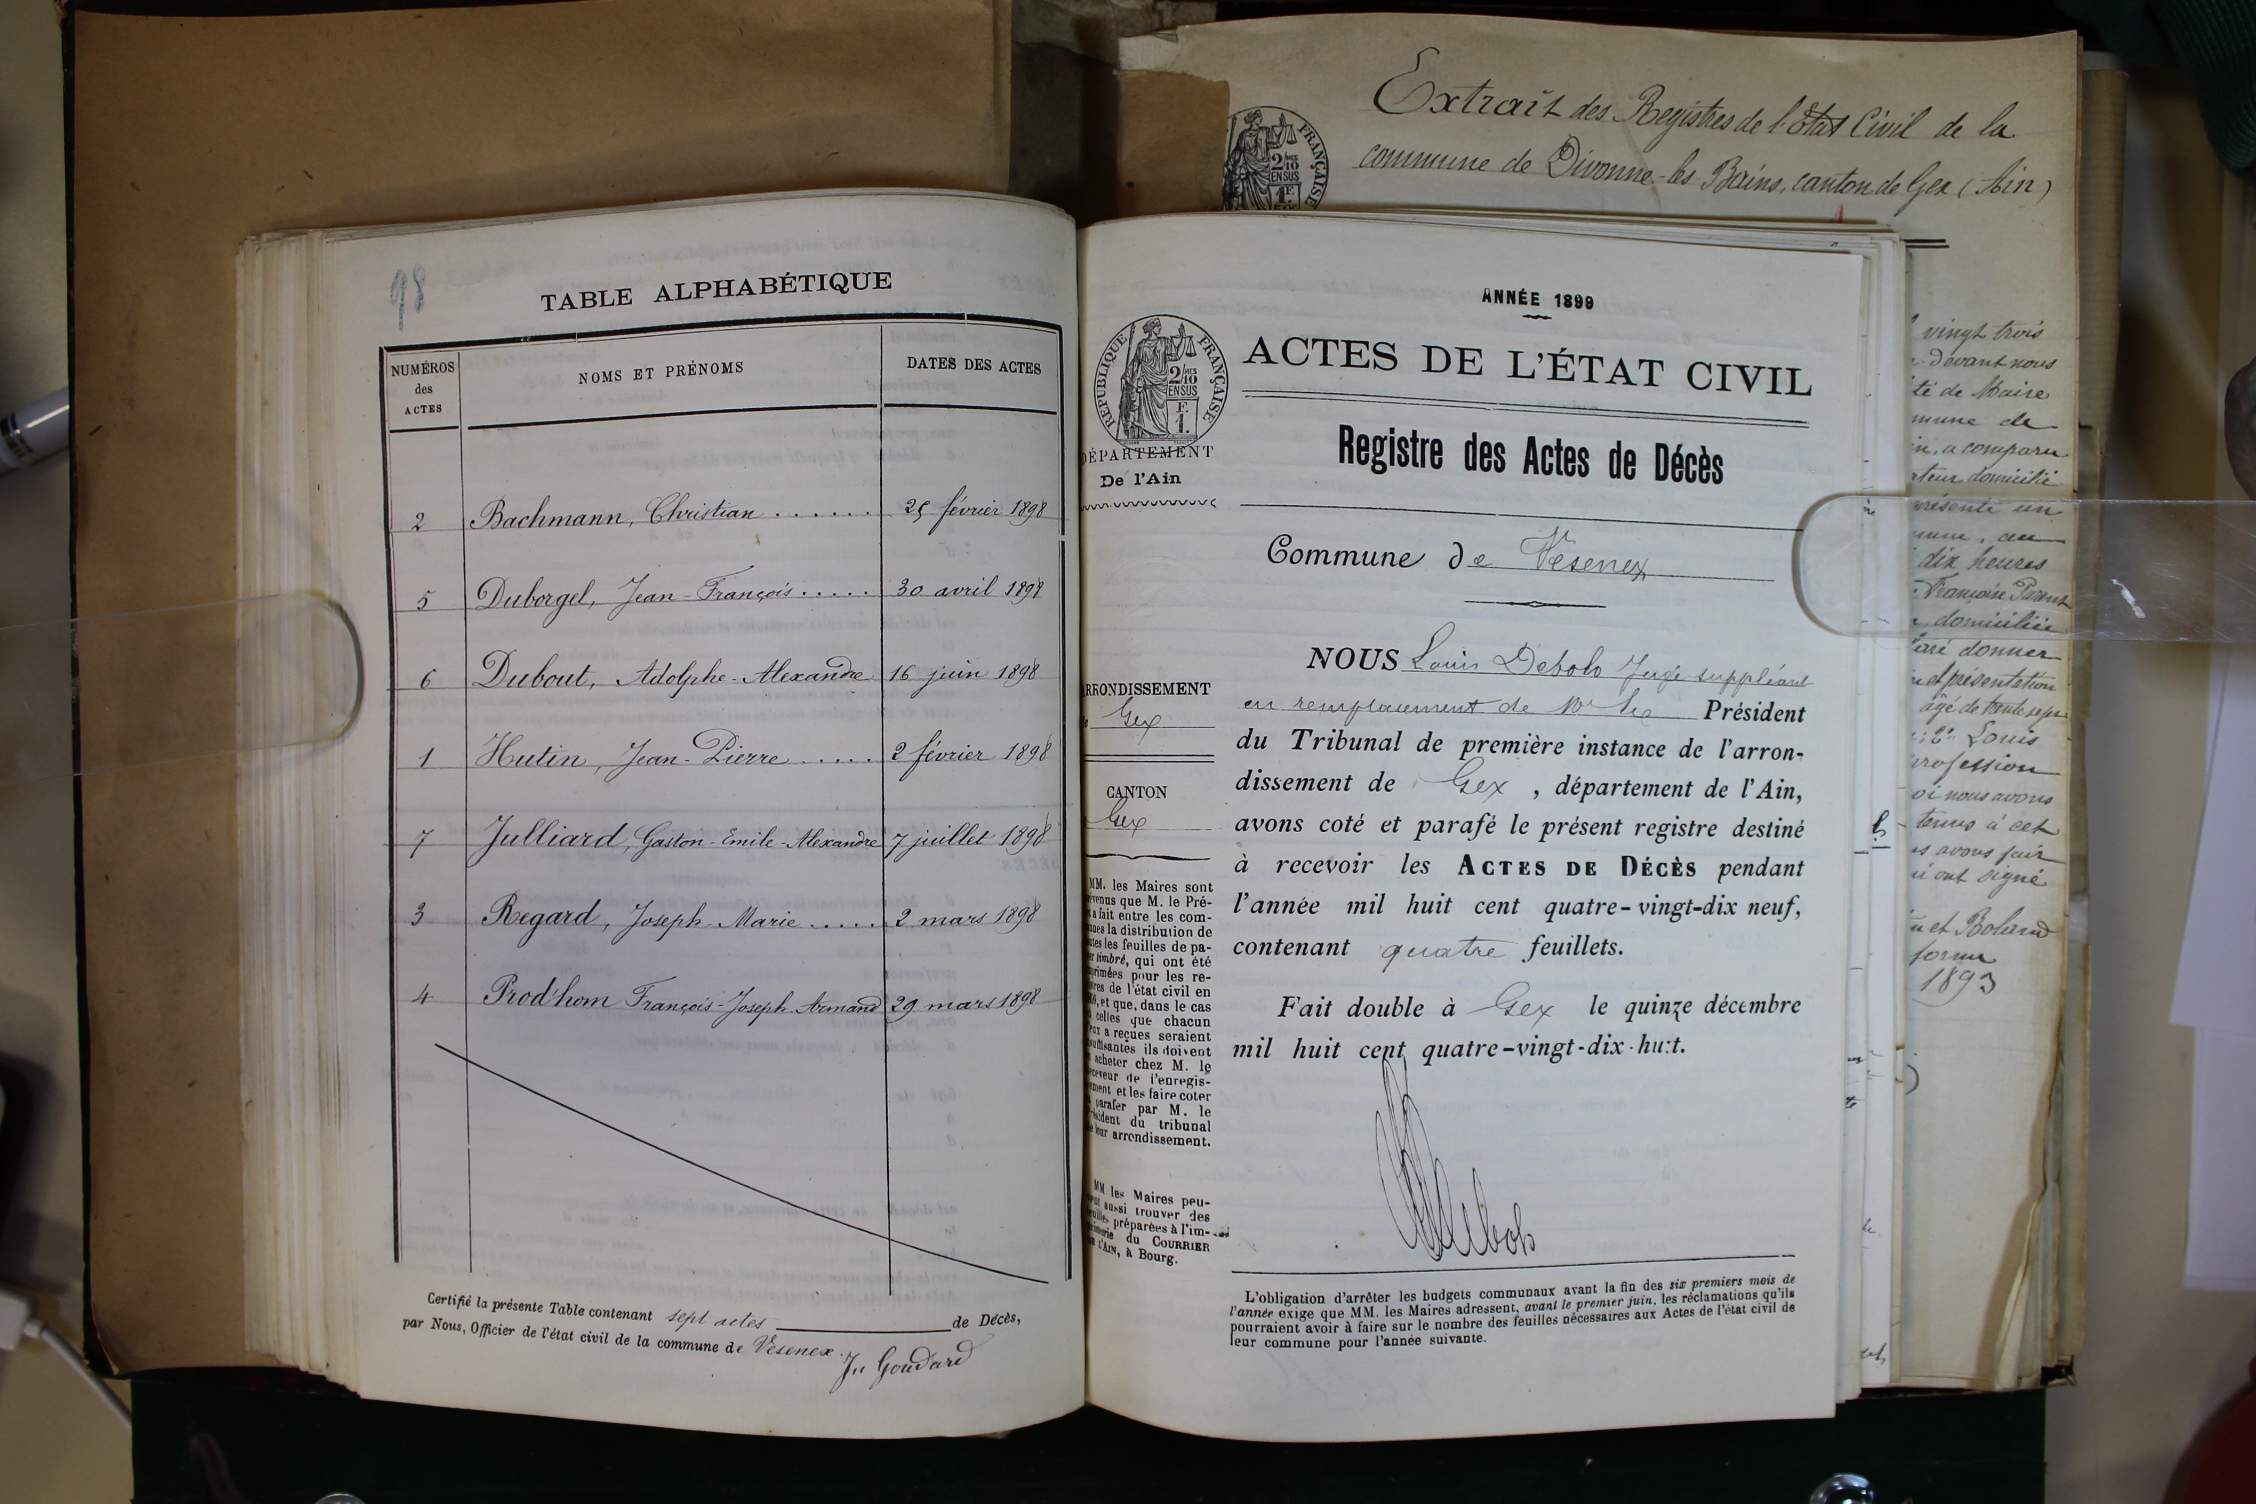 98
TABLE ALPHABÉTIQUE
NUMÉROS
des
ACTES
NOMS ET PRÉNOMS
DATES DES ACTES
2 Bachmann, Christian . . . . . . 25 février 1898
5 Duborgel, Jean-François . . . . . 30 avril 1898
6 Dubout, Adolphe-Alexandre 16 juin 1898
1 Hutin, Jean-Pierre . . . . . 2 février 1898
7 Julliard, Gaston-Emile-Alexandre 7 juillet 1898
3 Regard, Joseph-Marie . . . . . 2 mars 1898
4 Prod'hom François-Joseph-Armand 29 mars 1898
Certifié la présente Table contenant sept actes de Décès,
par Nous, Officier de l'état civil de la commune de Vesenex.
Jn Goudard
ANNÉE 1899
ACTES DE L'ÉTAT CIVIL
RÉPUBLIQUE FRANÇAISE
2/10 EN SUS
F. 1.
DÉPARTEMENT
De l'Ain
Registre des Actes de Décès
Commune de Vesenex
NOUS Louis Debolo Juge suppléant
en remplacement de Mr le Président
du Tribunal de première instance de l'arron-
dissement de Gex, département de l'Ain,
avons coté et parafé le présent registre destiné
à recevoir les ACTES DE DÉCÈS pendant
l'année mil huit cent quatre-vingt-dix neuf,
contenant quatre feuillets.
Fait double à Gex le quinze décembre
mil huit cent quatre-vingt-dix-huit.
ARRONDISSEMENT
Gex
CANTON
Gex
MM. les Maires sont
prévenus que M. le Pré-
fet a fait entre les com-
munes la distribution de
toutes les feuilles de pa-
pier timbré, qui ont été
imprimées pour les re-
gistres de l'état civil en
, et que, dans le cas
où celles que chacun
d'eux a reçues seraient
insuffisantes ils doivent
en acheter chez M. le
receveur de l'enregis-
trement et les faire coter
et parafer par M. le
Président du tribunal
de leur arrondissement.
MM les Maires peu-
vent aussi trouver des
feuilles préparées à l'im-
primerie du COURRIER
DE L'AIN, à Bourg.
L'obligation d'arrêter les budgets communaux avant la fin des six premiers mois de
l'année exige que MM. les Maires adressent, avant le premier juin, les réclamations qu'ils
pourraient avoir à faire sur le nombre des feuilles nécessaires aux Actes de l'état civil de
leur commune pour l'année suivante.
Extrait des Registres de l'Etat Civil de la
commune de Divonne-les-Bains, canton de Gex (Ain)
FRANÇAISE
2/10 EN SUS
vingt trois
devant nous
té de Maire
mune de
in, a comparu
ateur domicilié
présenté un
mune, au
dix heures
Françoise Parent
domiciliée
laré donner
et présentation
âgé de trente sept
Louis
profession
oi nous avons
tenus à cet
s avons fait
ui ont signé
et Boland
forme
1893